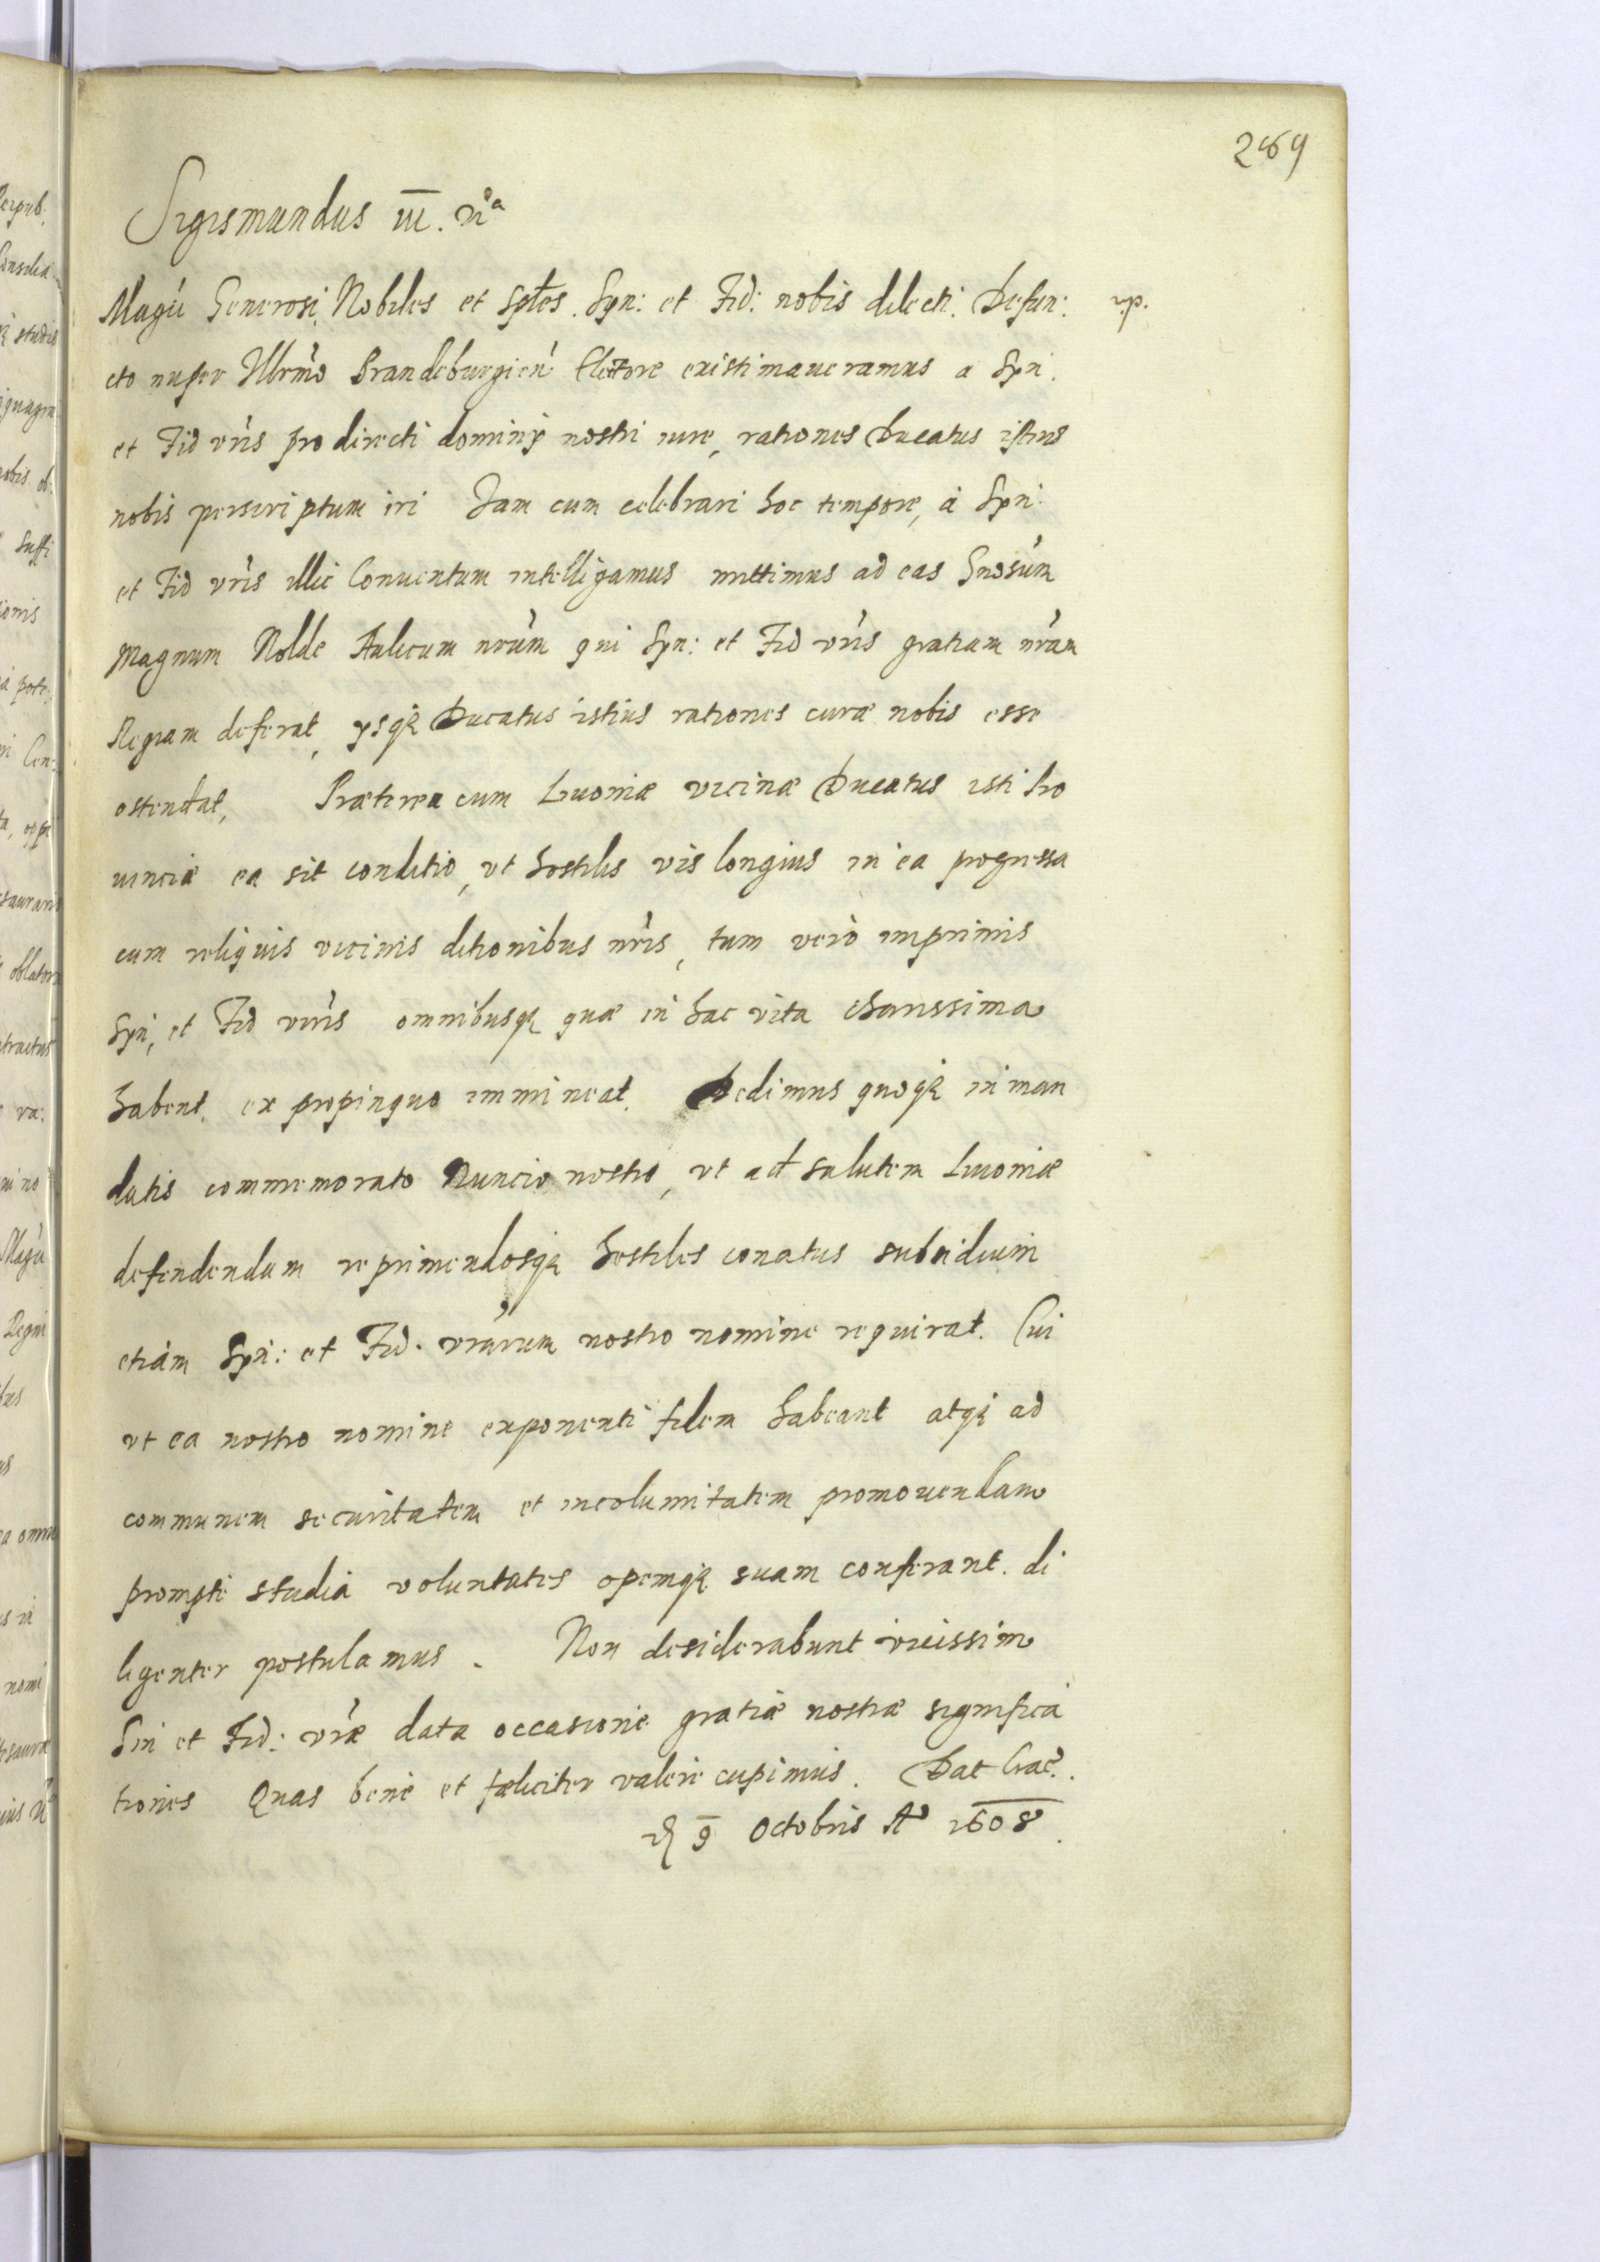 269
Sigismundus III. Rᵃ
Magci Generosi, Nobiles et Spltes. Syn: et Fid: nobis dilecti. Defun:
cto nuper Illrmo Brandeburgien Electore existimaueramus a Syn.
et Fid vris pro directi dominÿ nostri iure, rationes Ducatus istius
nobis perscriptum iri Jam cum celebrari hoc tempore, à Syn:
et Fid vris illic Conuentum intelligamus mittimus ad eas Gnosum
Magnum Nolde Aulicum nrum qui Syn: et Fid vris gratiam nram
Regiam deferat, ysq₃ Ducatus istius rationes curæ nobis esse
ostendat, Præterea cum Liuoniæ vicinæ Ducatus isti Pro
uinciæ ea sit conditio, vt hostilis vis longius in ea progressa
cum reliquis vicinis ditionibus nris, tum verò imprimis
Syn, et Fid vris omnibusq₃ quæ in hac vita charissima
habent, ex propinquo immineat. Dedimus quoq₃ in man
datis commemorato Nuncio nostro, vt ad salutem Liuoniæ
defendendam reprimendosq₃ hostiles conatus subsidium
etiam Syn: et Fid. vrarum nostro nomine requirat. Cui
vt ea nostro nomine exponenti fidem habeant atq₃ ad
communem securitatem et incolumitatem promouendam
prompte studia voluntates opemq₃ suam conferant. di
ligenter postulamus. Non desiderabunt vicissim
Sin et Fid: vræ data occasione gratiæ nostræ significa
tiones Quas bene et fæliciter valere cupimus. Dat Crac.
9 Octobris Aº 1608.